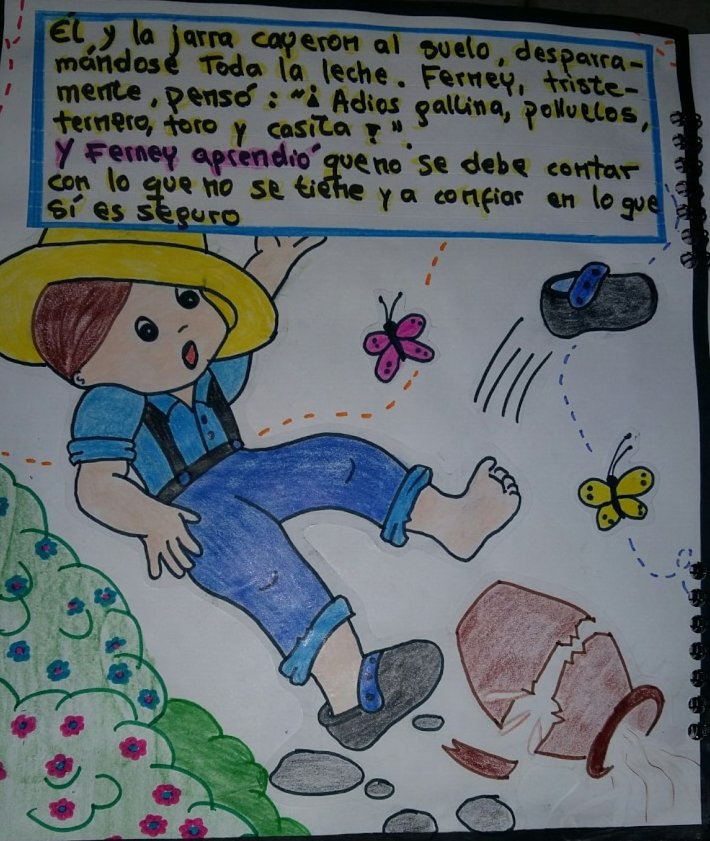 Él y la jarra cayeron al suelo, desparra-
mándose Toda la leche. Ferney, triste-
mente, pensó: "¡Adios gallina, polluelos,
ternero, toro y casita!"
Y Ferney aprendio que no se debe contar
con lo que no se tiene y a confiar en lo que
sí es seguro